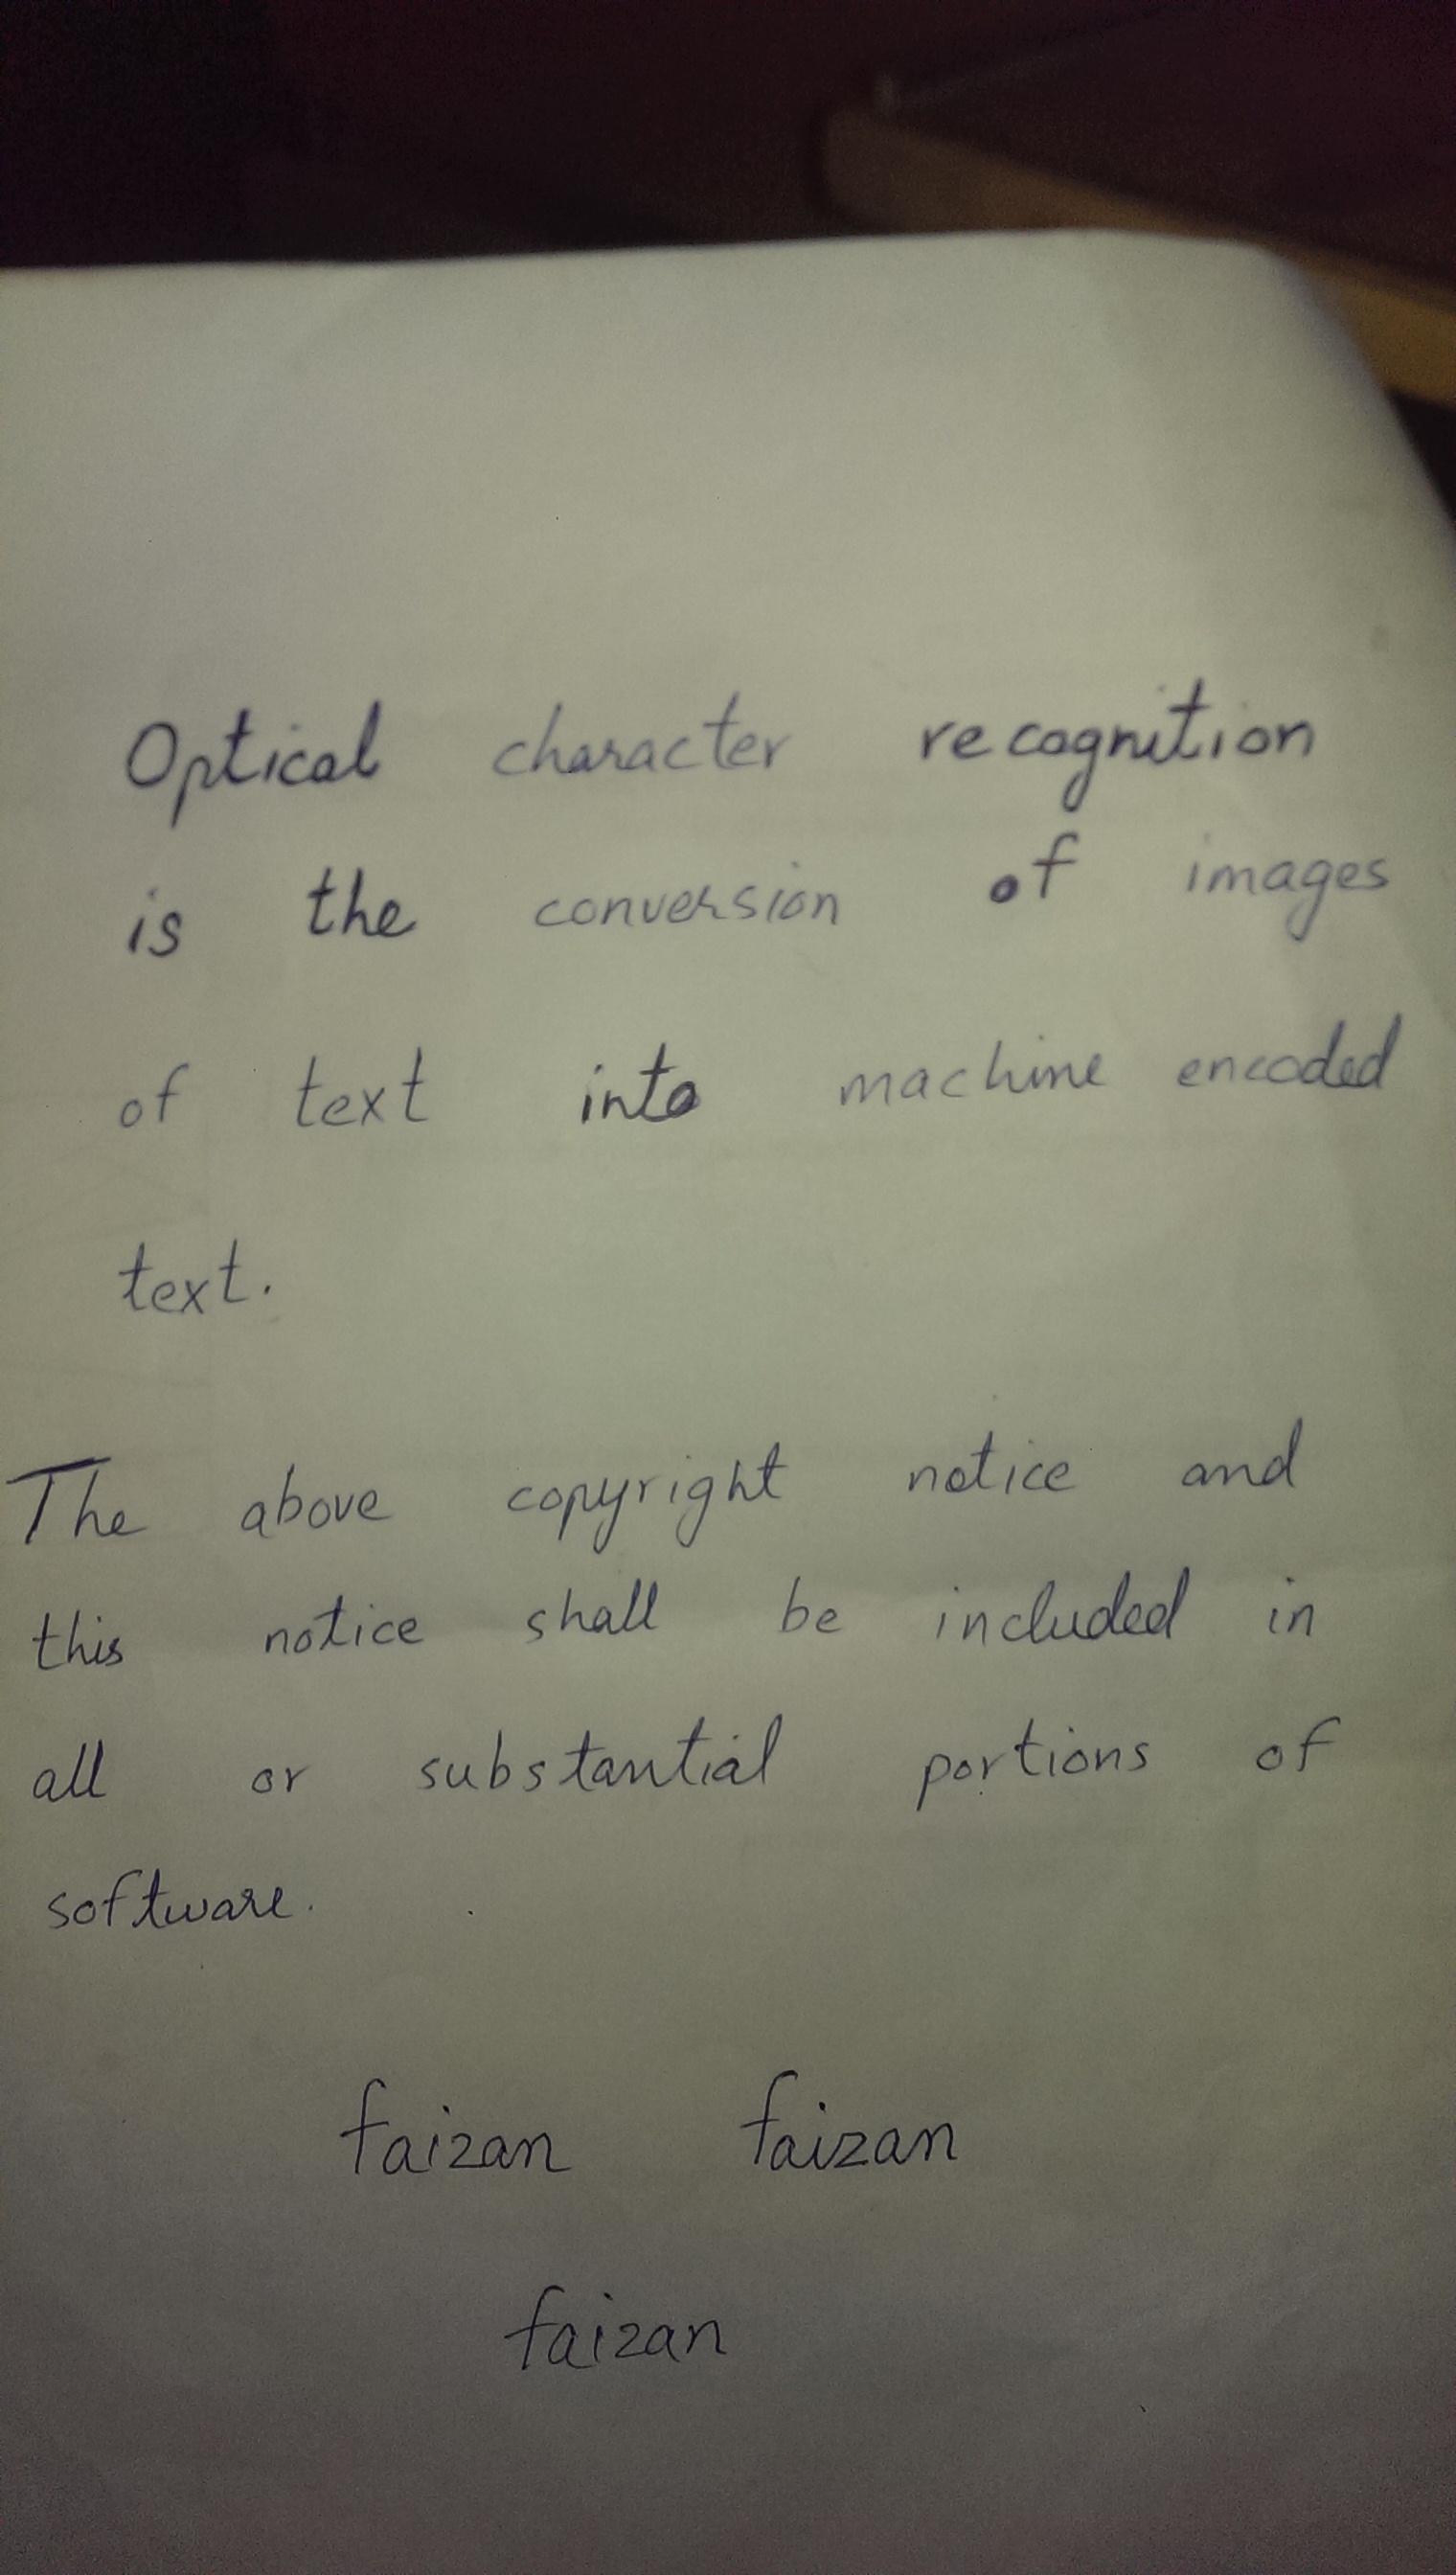 Optical character recognition
is the conversion of images
of text into machine encoded
text.
The above copyright notice and
this notice shall be included in
all or substantial portions of
software.
faizan faizan
faizan